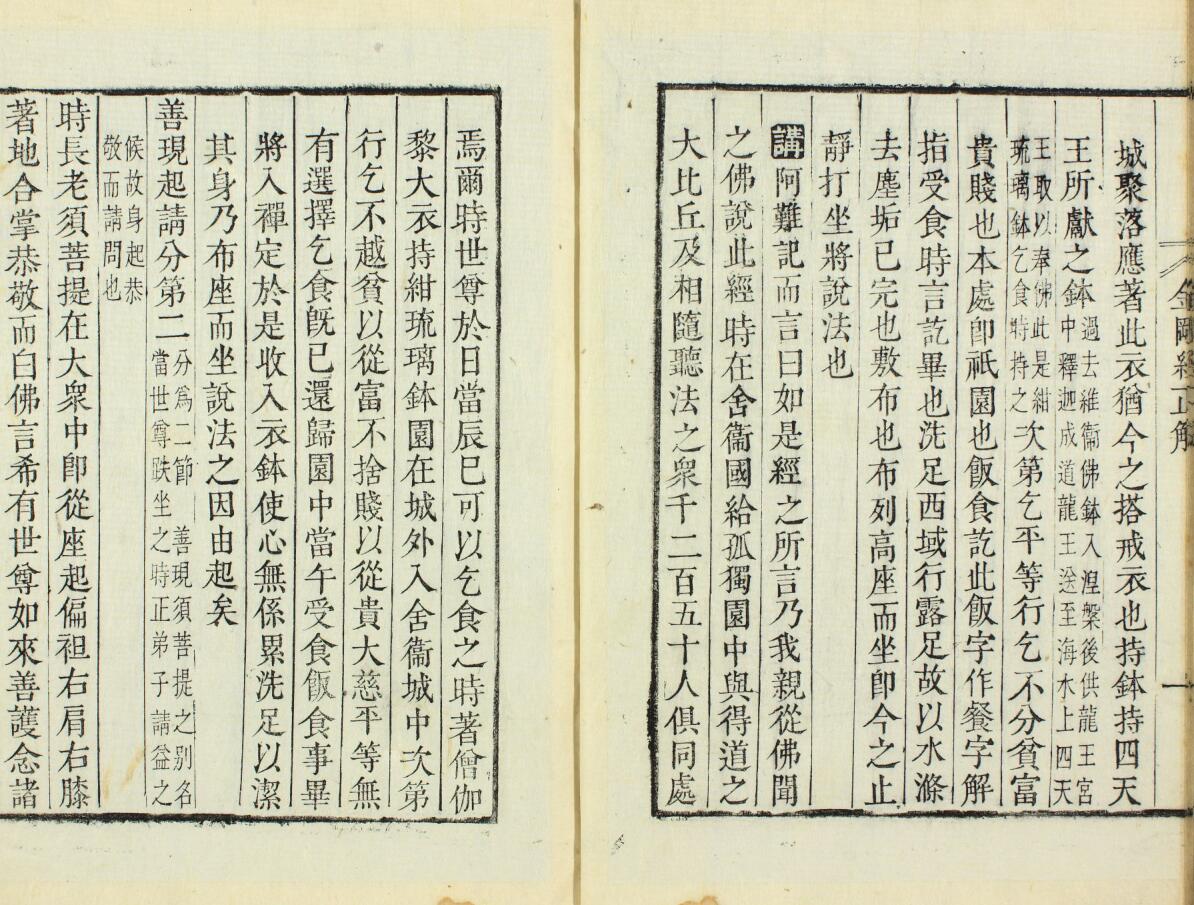 金剛經正解
一
城聚落應著此衣猶今之搭戒衣也持鉢持四天
王所獻之鉢中過去維衞佛鉢入湼槃後供龍王宮
釋迦成道龍王送至海水上四天
王取以奉佛此是紺
琉璃鉢乞食時持之次第乞平等行乞不分貧富
貴賤也本處卽祇園也飯食訖此飯字作餐字解
指受食時言訖畢也洗足西域行露足故以水滌
去塵垢已完也敷布也布列高座而坐卽今之止
靜打坐將說法也
講阿難記而言曰如是經之所言乃我親從佛聞
之佛說此經時在舍衞國給孤獨園中與得道之
大比丘及相隨聽法之衆千二百五十人俱同處
焉爾時世尊於日當辰巳可以乞食之時著僧伽
黎大衣持紺琉璃鉢園在城外入舍衞城中次第
行乞不越貧以從富不捨賤以從貴大慈平等無
有選擇乞食旣已還歸園中當午受食飯食事畢
將入禪定於是收入衣鉢使心無係累洗足以潔
其身乃布座而坐說法之因由起矣
善現起請分第二分爲二節 善現須菩提之別名
當世尊趺坐之時正弟子請益之
候故身起恭
敬而請問也
時長老須菩提在大衆中卽從座起偏袒右肩右膝
著地合掌恭敬而白佛言希有世尊如來善護念諸